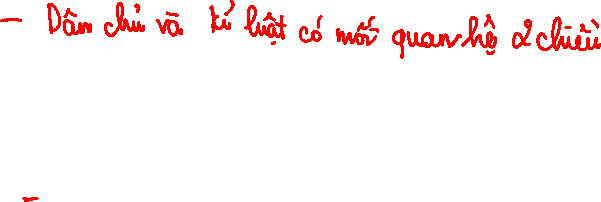 - Dân chủ và kỉ luật có mối quan hệ 2 chiều
-